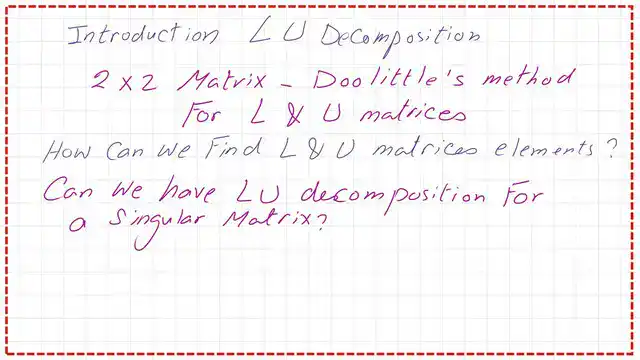 Introduction LU Decomposition
2x2 Matrix - Doolittle's method
For L & U matrices
How Can we Find L & U matrices elements?
Can we have LU decomposition For
a Singular Matrix?